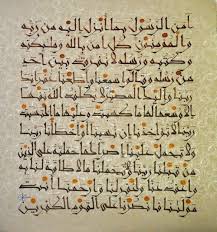 امن الرسول بما انزل اليه من ربه
والمومنون كل امن بالله ومليكته
وكتبه ورسله لا نفرق بين احد
من رسله وقالوا سمعنا واطعنا غفرانك
ربنا واليك المصير لا يكلف الله نفسا
الا وسعها لها ما كسبت وعليها ما اكتسبت
ربنا لا تواخذنا ان نسينا او اخطانا ربنا
ولا تحمل علينا اصرا كما حملته على الذين
من قبلنا ربنا ولا تحملنا ما لا طاقة لنا به
واعف عنا واغفر لنا وارحمنا انت
مولينا فانصرنا على القوم الكفرين